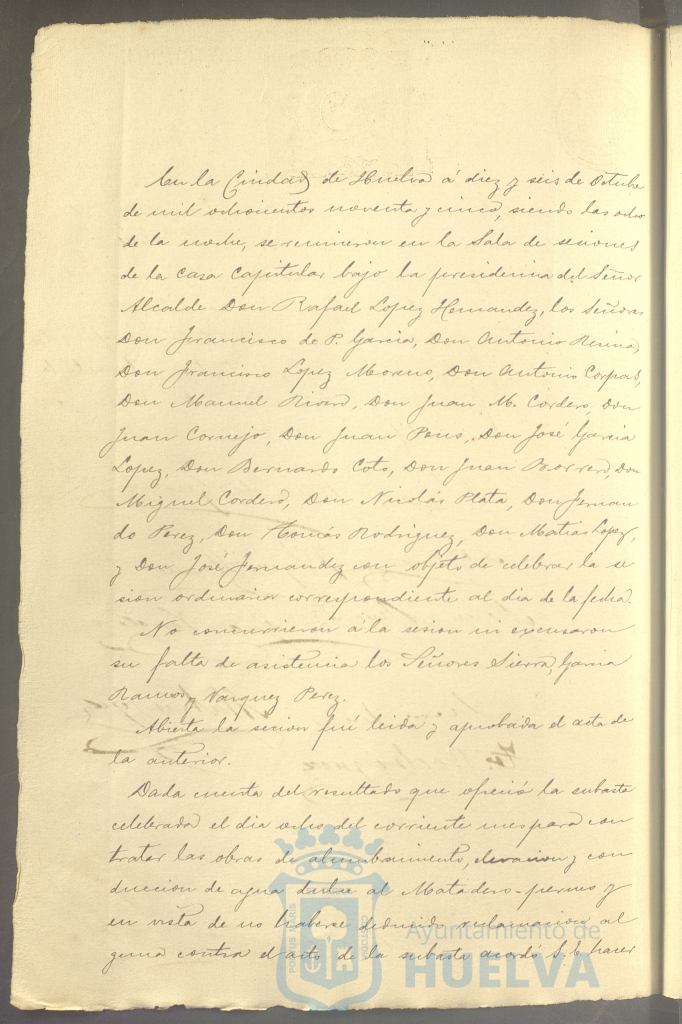 En la Ciudad de Huelva á diez y seis de Octubre
de mil ochocientos noventa y cinco, siendo las ocho
de la noche, se reunieron en la Sala de sesiones
de la Casa Capitular bajo la presidencia del Señor
Alcalde Don Rafael Lopez Hernandez, los Señores
Don Francisco de P. Garcia, Don Antonio Reina,
Don Francisco Lopez Moreno, Don Antonio Corpas,
Don Manuel Rivero, Don Juan M. Cordero, Don
Juan Cornejo, Don Juan Pons, Don José Garcia
Lopez, Don Bernardo Coto, Don Juan Borrero, Don
Miguel Cordero, Don Nicolás Plata, Don Fernan
do Perez, Don Tomás Rodriguez, Don Matias Lopez,
y Don José Fernandez con objeto de celebrar la se
sion ordinaria correspondiente al dia de la fecha.
No concurrieron á la sesion ni escusaron
su falta de asistencia los Señores Sierra, Garcia
Ramos y Vazquez Perez.
Abierta la secion fué leida y aprobada el acta de
la anterior.
Dada cuenta del resultado que ofreció la subasta
celebrada el dia ocho del corriente mes para con
tratar las obras de alumbramiento, elevacion y con
duccion de agua dulce al Matadero-permes y
en vista de no haberse deducido reclamacion al
guna contra el acto de la subasta acordó S. E. hacer
Ayuntamiento de
HUELVA
PORTUS MARIS